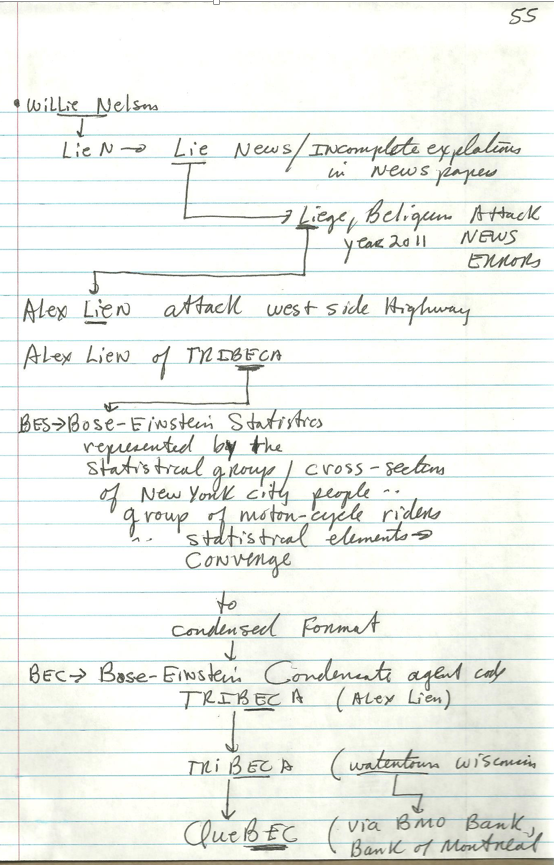 55
• Willie Nelson
LieN → Lie News/Incomplete explations
in News papers
→ Liege, Beligum Attack
year 2011 NEWS
ERRORS
Alex Lien attack west side Highway
Alex Lien of TRIBECA
BES→Bose-Einstein Statistics
represented by the
statistical group / cross-section
of New York city people ..
group of moton-cycle riders
.. statistical elements→
Converge
to
condensed Format
BEC→ Bose-Einstein Condensate agent code
TRIBECA (Alex Lien)
TRiBECA (watertown wisconsin
QueBEC (via BMO Bank,
Bank of Montreal